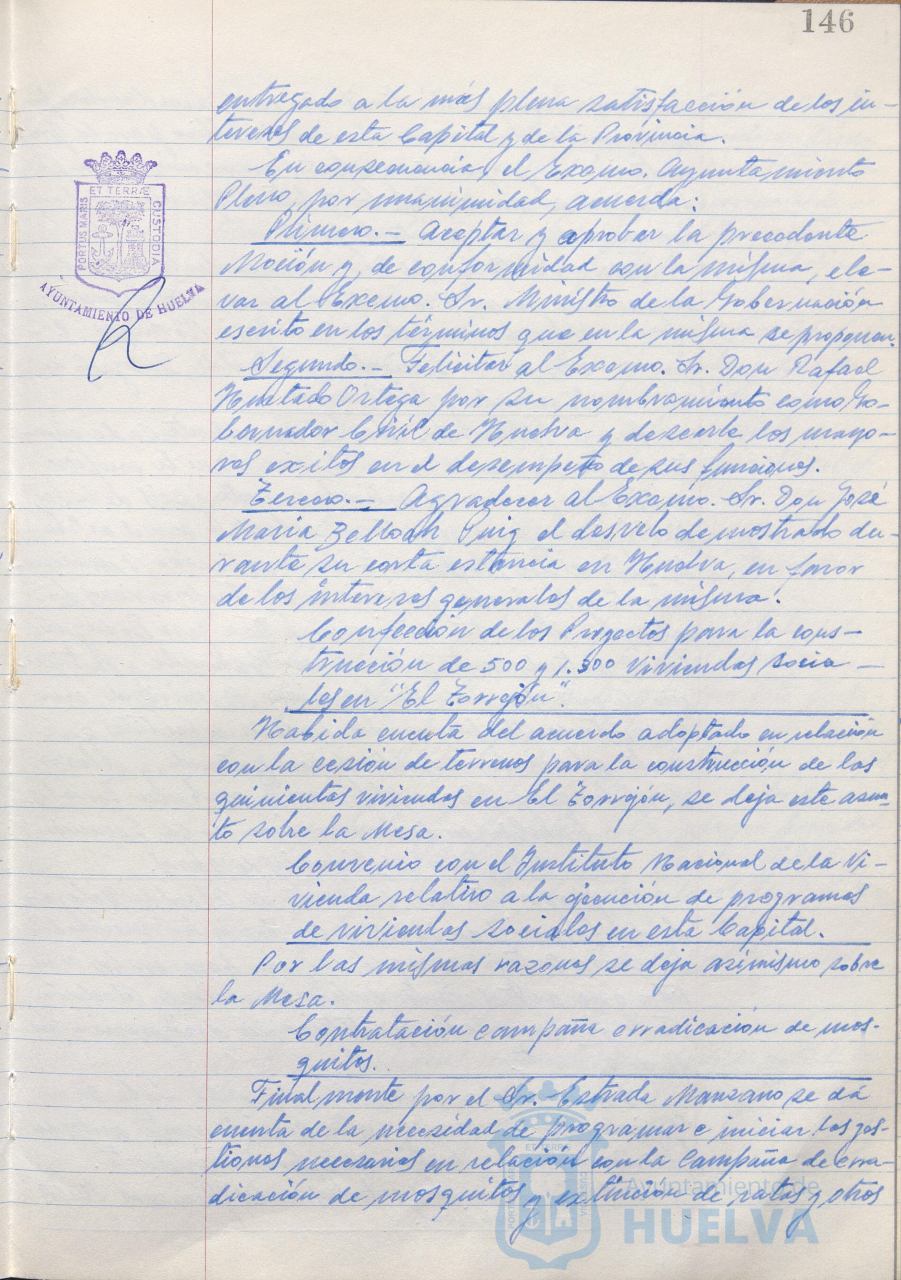 146
entregado a la más plena satisfacción de los in-
tereses de esta Capital y de la Provincia.
En consecuencia, el Excmo. Ayuntamiento
Pleno, por unanimidad, acuerda:
Primero.- Aceptar y aprobar la precedente
Moción y, de conformidad con la misma, ele-
var al Excmo. Sr. Ministro de la Gobernación
escrito en los términos que en la misma se proponen.
Segundo.- Felicitar al Excmo. Sr. Don Rafael
Hurtado Ortega por su nombramiento como Go-
bernador Civil de Huelva y desearle los mayo-
res exitos en el desempeño de sus funciones.
Tercero.- Agradecer al Excmo. Sr. Don José
Maria Belloch Puig el desvelo demostrado du-
rante su corta estancia en Huelva, en favor
de los intereses generales de la misma.
Confección de los Proyectos para la cons-
trucción de 500 y 1.500 viviendas socia-
les en "El Torrejón".
Habida cuenta del acuerdo adoptado en relación
con la cesión de terrenos para la construcción de las
quinientas viviendas en El Torrejón, se deja este asun-
to sobre la Mesa.
Convenio con el Instituto Nacional de la Vi-
vienda relativo a la ejecución de programas
de viviendas sociales en esta Capital.
Por las mismas razones se deja asimismo sobre
la Mesa.
Contratación campaña erradicación de mos-
quitos.
Finalmente por el Sr. Estrada Manzano se dá
cuenta de la necesidad de programar e iniciar las ges-
tiones necesarias en relación con la Campaña de erra-
dicación de mosquitos y extinción de ratas y otros
PORTUS MARIS ET TERRÆ CUSTODIA
AYUNTAMIENTO DE HUELVA
Ayuntamiento de
HUELVA